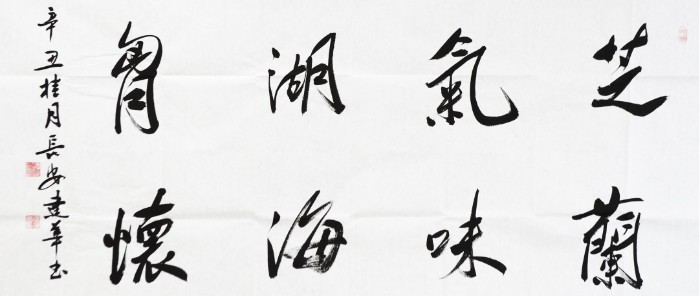 芝蘭
氣味
湖海
胷懷
辛丑桂月長安建華书